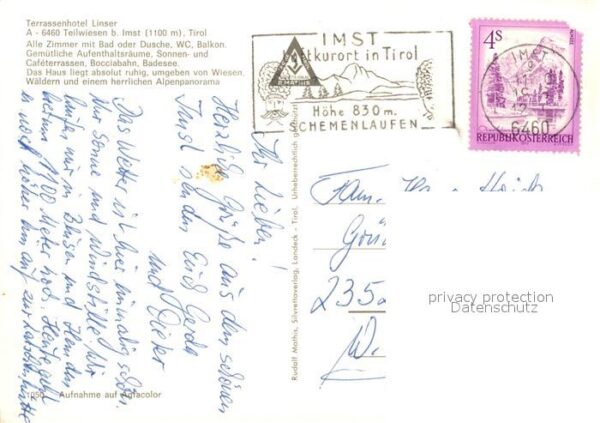 Terrassenhotel Linser
A - 6460 Teilwiesen b. Imst (1100 m), Tirol
Alle Zimmer mit Bad oder Dusche, WC, Balkon.
Gemütliche Aufenthaltsräume, Sonnen- und
Caféterrassen, Bocciabahn, Badesee.
Das Haus liegt absolut ruhig, umgeben von Wiesen,
Wäldern und einem herrlichen Alpenpanorama
IMST
Luftkurort in Tirol
Höhe 830 m.
SCHEMENLAUFEN
4 S
IMST
6460
REPUBLIK ÖSTERREICH
Ihr Lieben!
Herzliche Grüße aus dem schönen
Imst senden Euch Gerda
und Dieter
Das Wetter ist hier einmalig schön.
Nur Sonne und Windstille. Wir
laufen nur in Blusen und Hemden
1100 Meter hoch. Heute geht
es noch höher hinauf zur
Fam.
235
W.
Rudolf Mathis, Silvrettaverlag, Landeck - Tirol. Urheberrechtlich geschützt
Aufnahme auf Agfacolor
privacy protection
Datenschutz